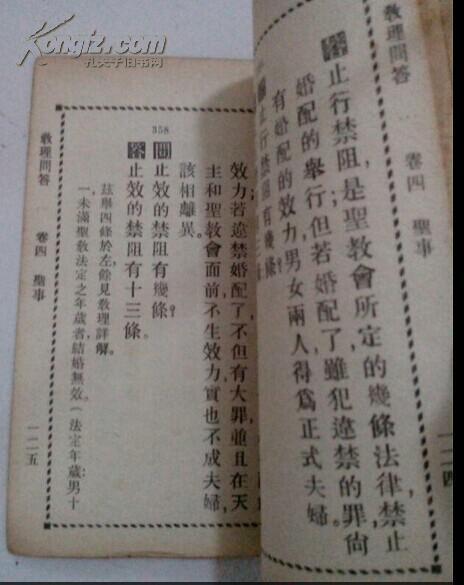 Kongfz.com
孔夫子旧书网
教理問答 卷四 聖事 一二四
答 止行禁阻,是聖教會所定的幾條法律,禁止
婚配的舉行;但若婚配了,雖犯違禁的罪,尚
有婚配的效力,男女兩人,得爲正式夫婦。
問 止行禁阻有幾條?
效力若違禁婚配了,不但有大罪,並且在天
主和聖教會面前,不生效力,實也不成夫婦,
該相離異。
358
問 止效的禁阻有幾條?
答 止效的禁阻有十三條。
玆舉四條於左,餘見教理詳解。
一未滿聖教法定之年歲者,結婚無效。(法定年歲:男十
教理問答 卷四 聖事 一二五